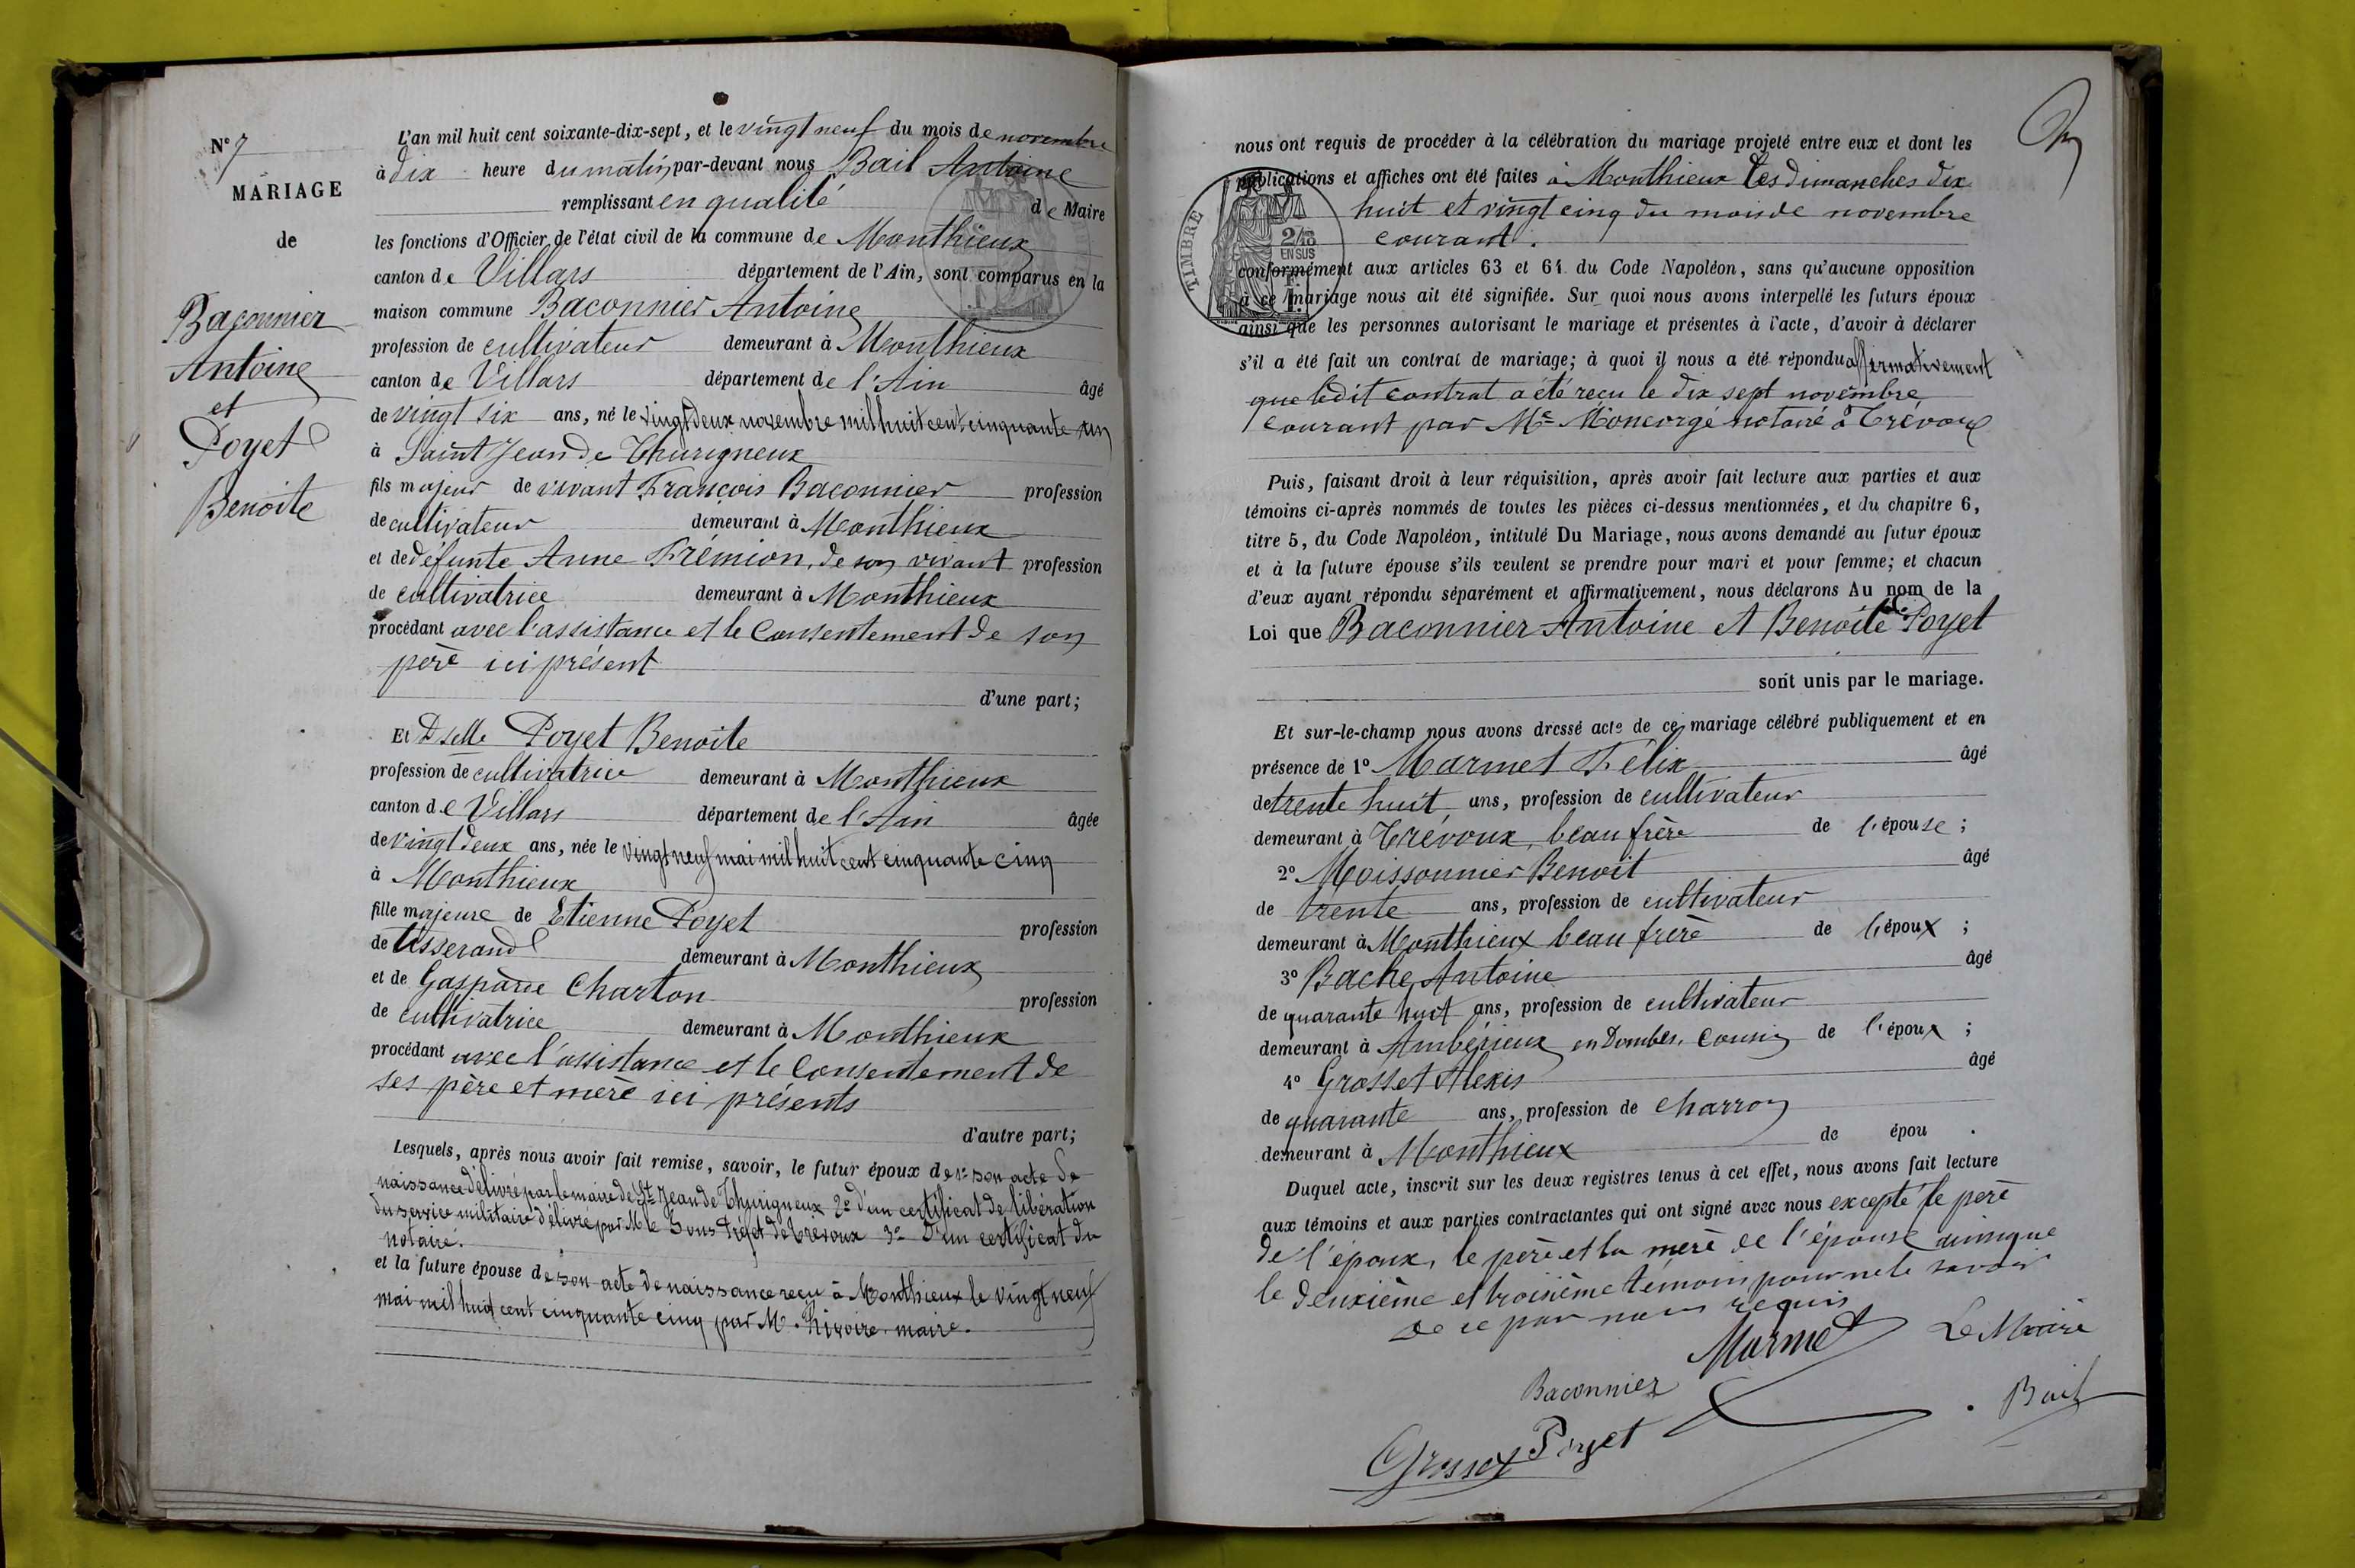 N° 7
MARIAGE
de
Baconnier
Antoine
et
Poyet
Benoite
L'an mil huit cent soixante-dix-sept, et le vingt neuf du mois de novembre
à dix heure du matin, par-devant nous Bail Antoine
remplissant en qualité de Maire
les fonctions d'Officier de l'état civil de la commune de Monthieux
canton de Villars département de l'Ain, sont comparus en la
maison commune Baconnier Antoine
profession de cultivateur demeurant à Monthieux
canton de Villars département de l'Ain âgé
de vingt six ans, né le vingt deux novembre mil huit cent cinquante un
à Saint Jean de Thurigneux
fils majeur de vivant François Baconnier profession
de cultivateur demeurant à Monthieux
et de défunte Anne Frémion, de son vivant profession
de cultivatrice demeurant à Monthieux
procédant avec l'assistance et le consentement de son
père ici présent
d'une part;
Et Dselle Poyet Benoite
profession de cultivatrice demeurant à Monthieux
canton de Villars département de l'Ain âgée
de vingt deux ans, née le vingt neuf mai mil huit cent cinquante cinq
à Monthieux
fille majeure de Etienne Poyet profession
de tisserand demeurant à Monthieux
et de Gasparde Charton profession
de cultivatrice demeurant à Monthieux
procédant avec l'assistance et le consentement de
ses père et mère ici présents
d'autre part;
Lesquels, après nous avoir fait remise, savoir, le futur époux de 1° son acte de
naissance délivré par le maire de St Jean de Thurigneux 2° d'un certificat de libération
du service militaire délivré par M le Sous Préfet de Trévoux 3° d'un certificat du
notaire.
et la future épouse de son acte de naissance reçu à Monthieux le vingt neuf
mai mil huit cent cinquante cinq par M. maire.
nous ont requis de procéder à la célébration du mariage projeté entre eux et dont les
publications et affiches ont été faites à Monthieux les dimanches dix
huit et vingt cinq du mois de novembre
courant.
TIMBRE
2/10
EN SUS
conformément aux articles 63 et 64 du Code Napoléon, sans qu'aucune opposition
à ce mariage nous ait été signifiée. Sur quoi nous avons interpellé les futurs époux
ainsi que les personnes autorisant le mariage et présentes à l'acte, d'avoir à déclarer
s'il a été fait un contrat de mariage; à quoi il nous a été répondu affirmativement
que ledit contrat a été reçu le dix sept novembre
courant par Me Moncorgé notaire à Trévoux
Puis, faisant droit à leur réquisition, après avoir fait lecture aux parties et aux
témoins ci-après nommés de toutes les pièces ci-dessus mentionnées, et du chapitre 6,
titre 5, du Code Napoléon, intitulé Du Mariage, nous avons demandé au futur époux
et à la future épouse s'ils veulent se prendre pour mari et pour femme; et chacun
d'eux ayant répondu séparément et affirmativement, nous déclarons Au nom de la
Loi que Baconnier Antoine et Benoite Poyet
sont unis par le mariage.
Et sur-le-champ nous avons dressé acte de ce mariage célébré publiquement et en
présence de 1° Marmet Félix âgé
de trente huit ans, profession de cultivateur
demeurant à Trévoux, beau frère de l'épouse;
2° Moissonnier Benoit âgé
de trente ans, profession de cultivateur
demeurant à Monthieux beau frère de l'époux;
3° Bache Antoine âgé
de quarante huit ans, profession de cultivateur
demeurant à Ambérieux en Dombes, cousin de l'époux;
4° Grosset Alexis âgé
de quarante ans, profession de charron
demeurant à Monthieux de épou .
Duquel acte, inscrit sur les deux registres tenus à cet effet, nous avons fait lecture
aux témoins et aux parties contractantes qui ont signé avec nous excepté le père
de l'époux, le père et la mère de l'épouse ainsi que
le deuxième et troisième témoin pour ne le savoir
de ce par nous requis
Marmet Le Maire
Baconnier
Bail
Grosset Poyet